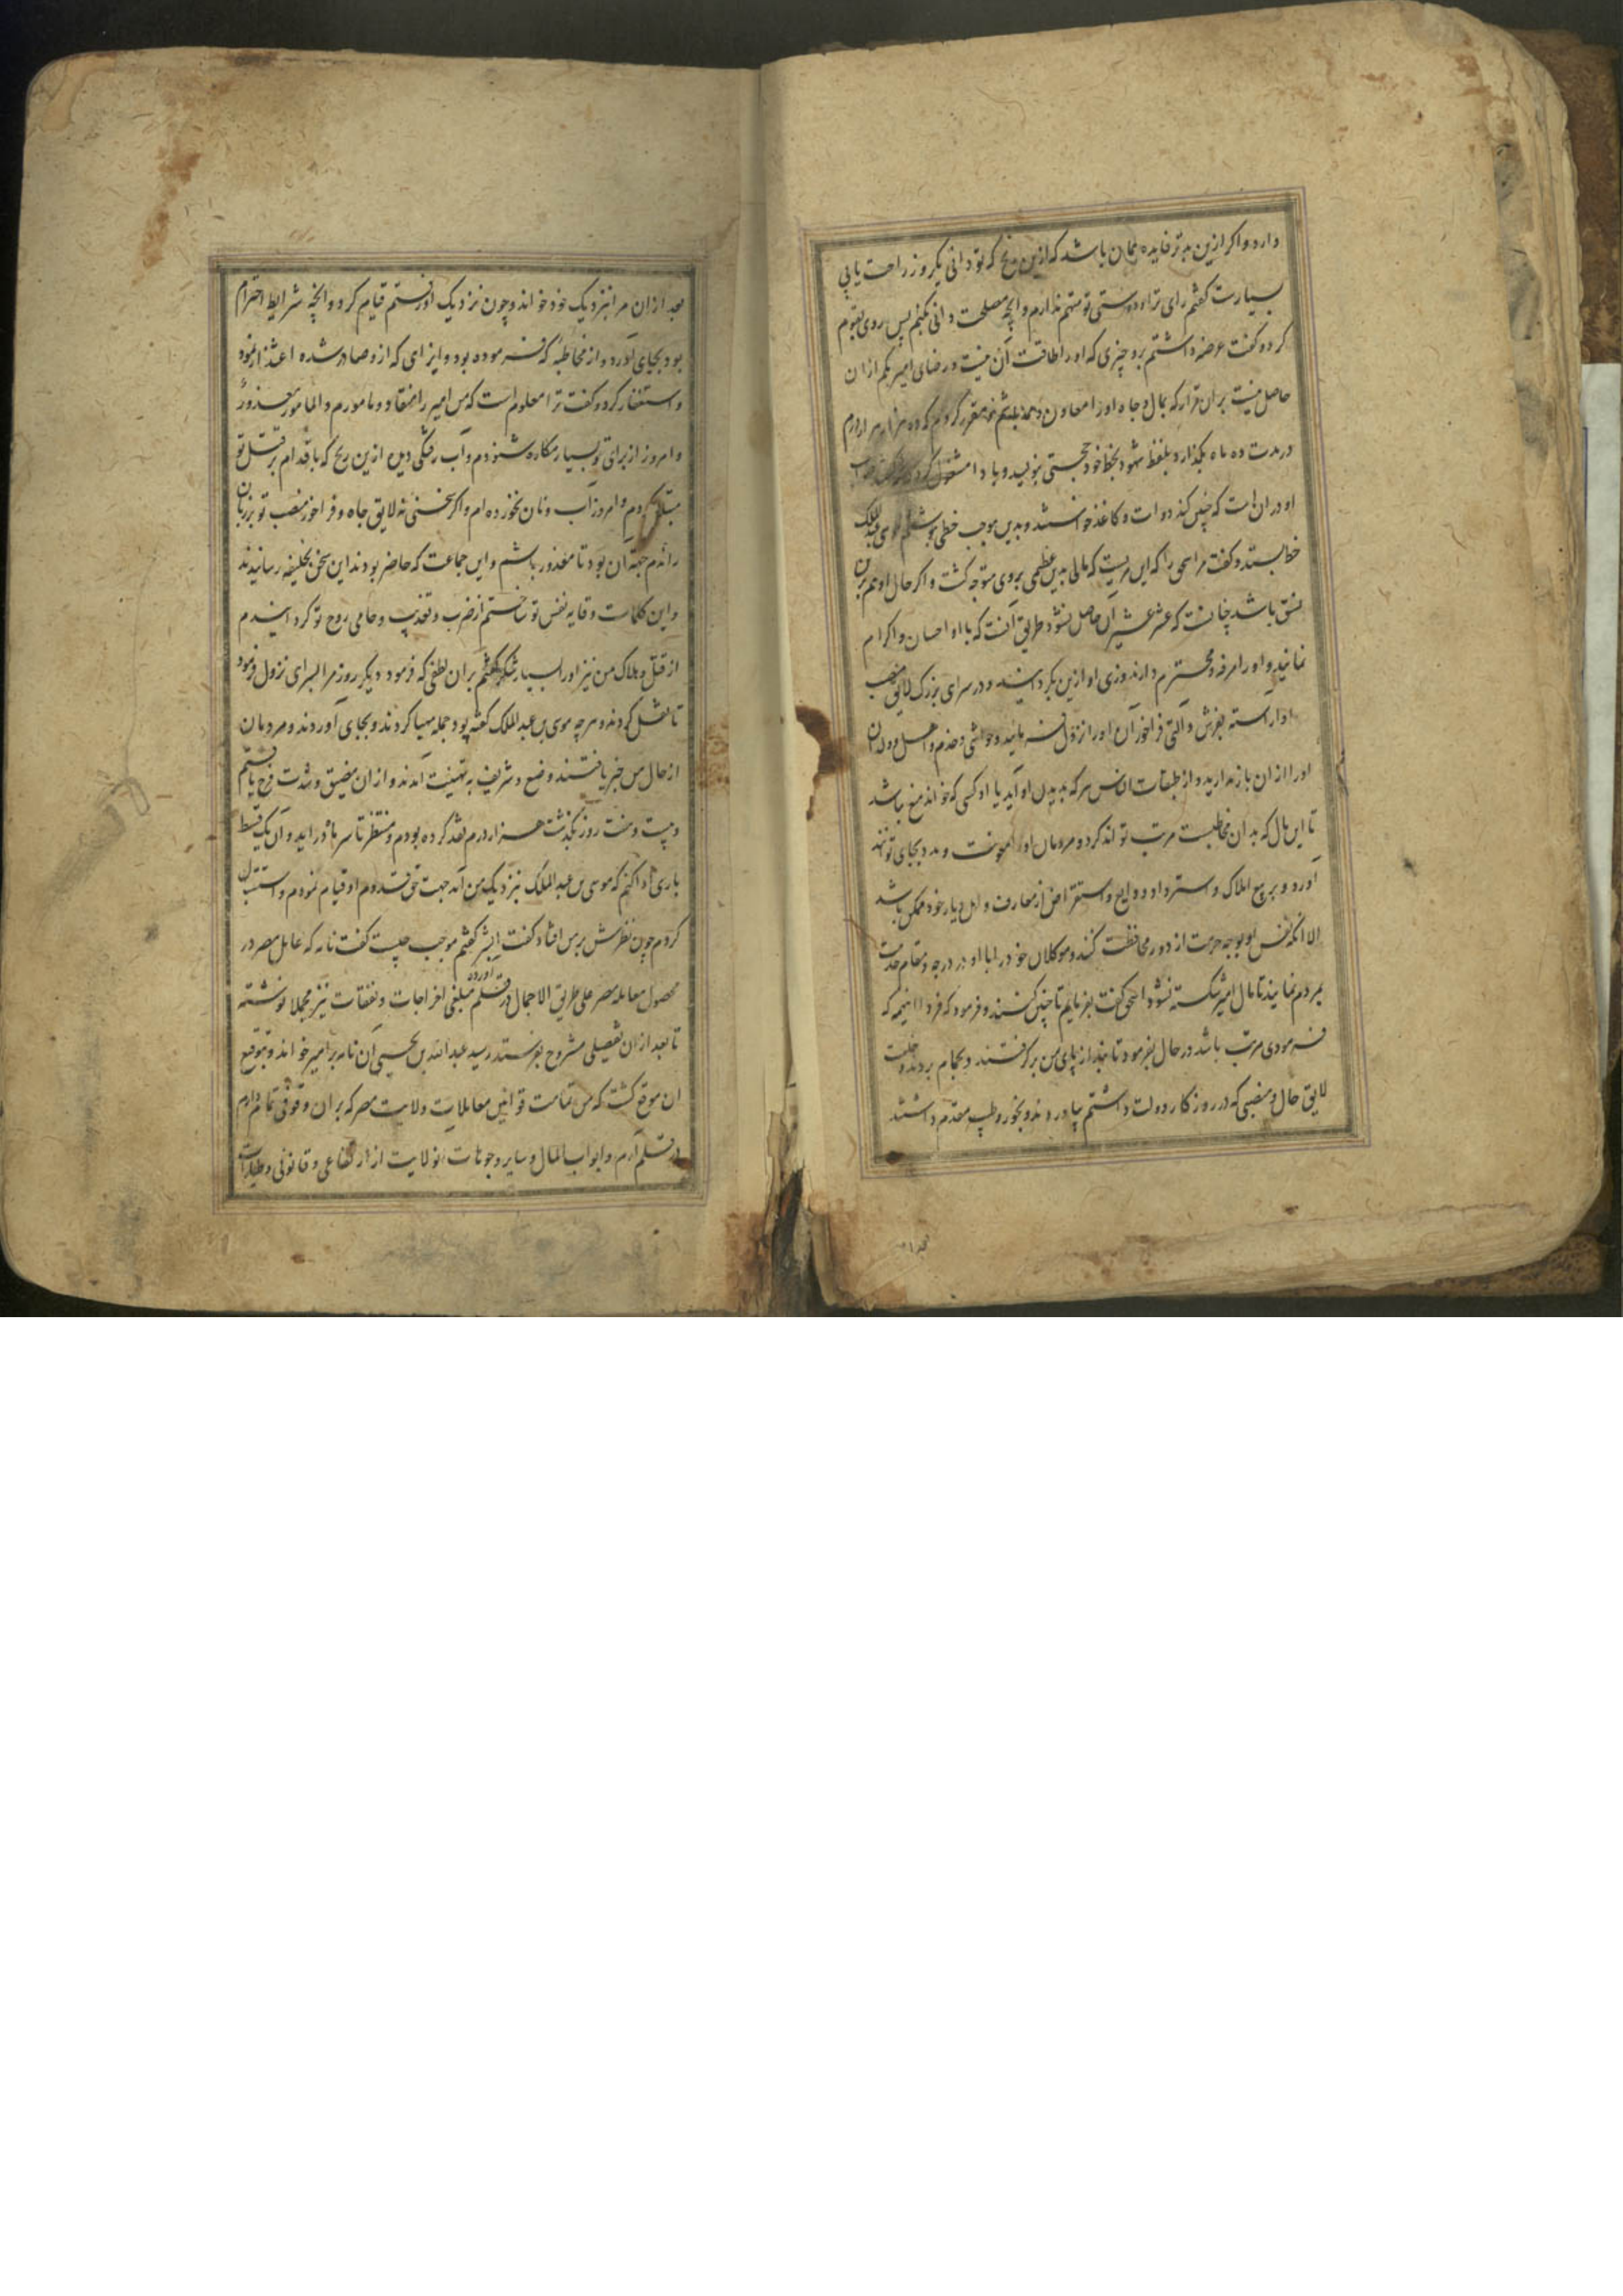 دارد و اکر ازین بد تر فایده همان باشد که ازین رنج که تو دانی یکروز راحت یابی
بسیارست کفتم رای ترا و دوستی تو متهم ندارم و انچه مصلحت دانی بکنم پس روی بقوم
کرده کفت عرضه داشتم برو چیزی که او را طاقت آن نیست و رضای امیر بکم ازان
حاصل نیست بران قرار که بمال و جاه او را معاون و ممد باشم مقرر کردم که ده هزار هزار درم
در مدت ده ماه بکذارد بلفظ شهود بخط خود حجتی بنویسد و باداء مشغول کردد
او دران است که چنین کند دوات و کاغذ خواستند و بدین موجب خطی نوشتم موسی عبدالملک
خط بستد و کفت مر اسحق را که این مردیست که مالی بدین عظمی بروی متوجه کشت و اکر حال او هم برین
نسق باشد چنانست که عشر عشیر آن حاصل نشود طریق آنست که با او احسان و اکرام
نمایند و او را مرفه و محترم دارند و زی او ازین بکردانند و در سرای بزرک لایق منصب
او اراسته بفرش و آلتی فراخور آن او را نزول فرمایند و حواشی و خدم و اهل و ولدان
او را ازان باز ندارید و از طبقات الناس هر که بدیدن او آید یا او کسی که خواند منع نباشد
تا این مال که بدان مخاطبست مرتب تواند کرد و مردمان او را معونت و مدد بجای توانند
آورد و بر بیع املاک و استرداد ودایع و استقراض از معارف و اهل دیار خود ممکن باشد
الا انکه نفس او بوجه حرمت از دور محافظت کنند و موکلان خود را با او در درجه و مقام خدمت
بمردم نمایند تا مال امیر شکسته نشود اسحق کفت بفرمایم تا چنین کنند و فرمود که فردا اینهمه که
فرمودی مرتب باشد در حال بفرمود تا بند از پای من برکرفتند و بحمام بردند و خلعت
لایق حال و منصبی که در روزکار دولت داشتم بیاوردند و بخور و طیب مقدم داشتند
بعد ازان مرا بنزدیک خود خواند و چون نزدیک او رفتم قیام کرد و انچه شرایط احترام
بود بجای آورد و از مخاطبه که فرموده بود و ایذای که ازو صادر شده اعتذار نمود
و استغفار کرد و کفت ترا معلوم است که من امیر را منقاد و مامورم و المامور معذورٌ
و امروز از برای تو بسیار مکاره شنودم و آب رفتکی دیدم ازین رنج که باقدام بر قتل تو
مبتلا کردم و امروز آب و نان نخورده ام و اکر سخنی نه لایق جاه و فراخور منصب تو بر زبان
راندم جهة آن بود تا معذور باشم و این جماعت که حاضر بودند این سخن بخلیفه رسانیدند
و این کلمات وقایه نفس تو ساختم از ضرب و تعذیب و حامی روح تو کردانیدم
از قتل و هلاک من نیز او را بسیار شکر کفتم بران لطفی که فرمود دیکر روز مرا بسرای نزول فرمود
تا نقل کردند و هر چه موسی بن عبد الملک کفته بود جمله مهیا کردند و بجای آوردند و مردمان
از حال من خبر یافتند وضیع و شریف به تهنیت آمدند و ازان مضیق و شدت فرج یافتم
و بیست و هفت روز بکذشت هزار درم نقد کرده بودم و منتظر تا سر ماه درآید و آن یک قسط
باری ادا کنم که موسی بن عبد الملک بنزدیک من آمد جهت حق قدوم او قیام نمودم و استقبال
کردم چون نظرش بر من افتاد کفت ابشر کفتم موجب چیست کفت نامه که عامل مصر در
محصول معامله مصر علی طریق الاجمال در قلم آورده مبلغی اخراجات و نفقات نیز مجملا نوشته
تا بعد ازان تفصیلی مشروح بفرستد رسید عبد الله بن یحیی آن نامه بر امیر خواند و توقیع
ان موقع کشت که من تمامت قوانین معاملات ولایت مصر که بران وقوفی تمام دارم
در قلم آرم و ابواب المال و سایر وجوهات آنولایت از ارتفاعی و قانونی و طیارات